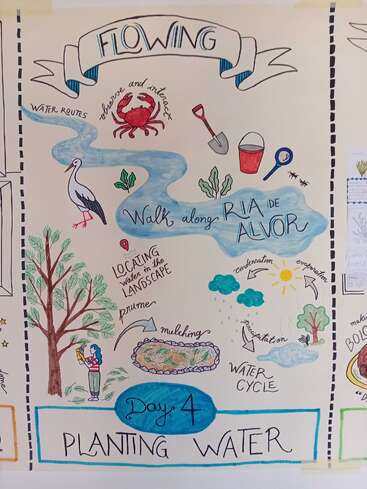 FLOWING
observe and interact
WATER ROUTES
Walk along RIA DE
ALVOR
LOCATING
water in the
LANDSCAPE
prume
mulching
condensation
evaporation
precipitation
WATER
CYCLE
Day 4
PLANTING WATER
BOLO